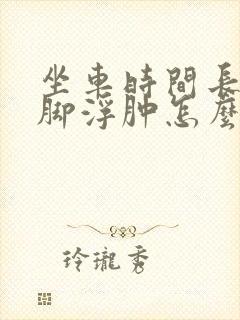 坐車時間長
脚浮肿怎麼
玲瓏秀